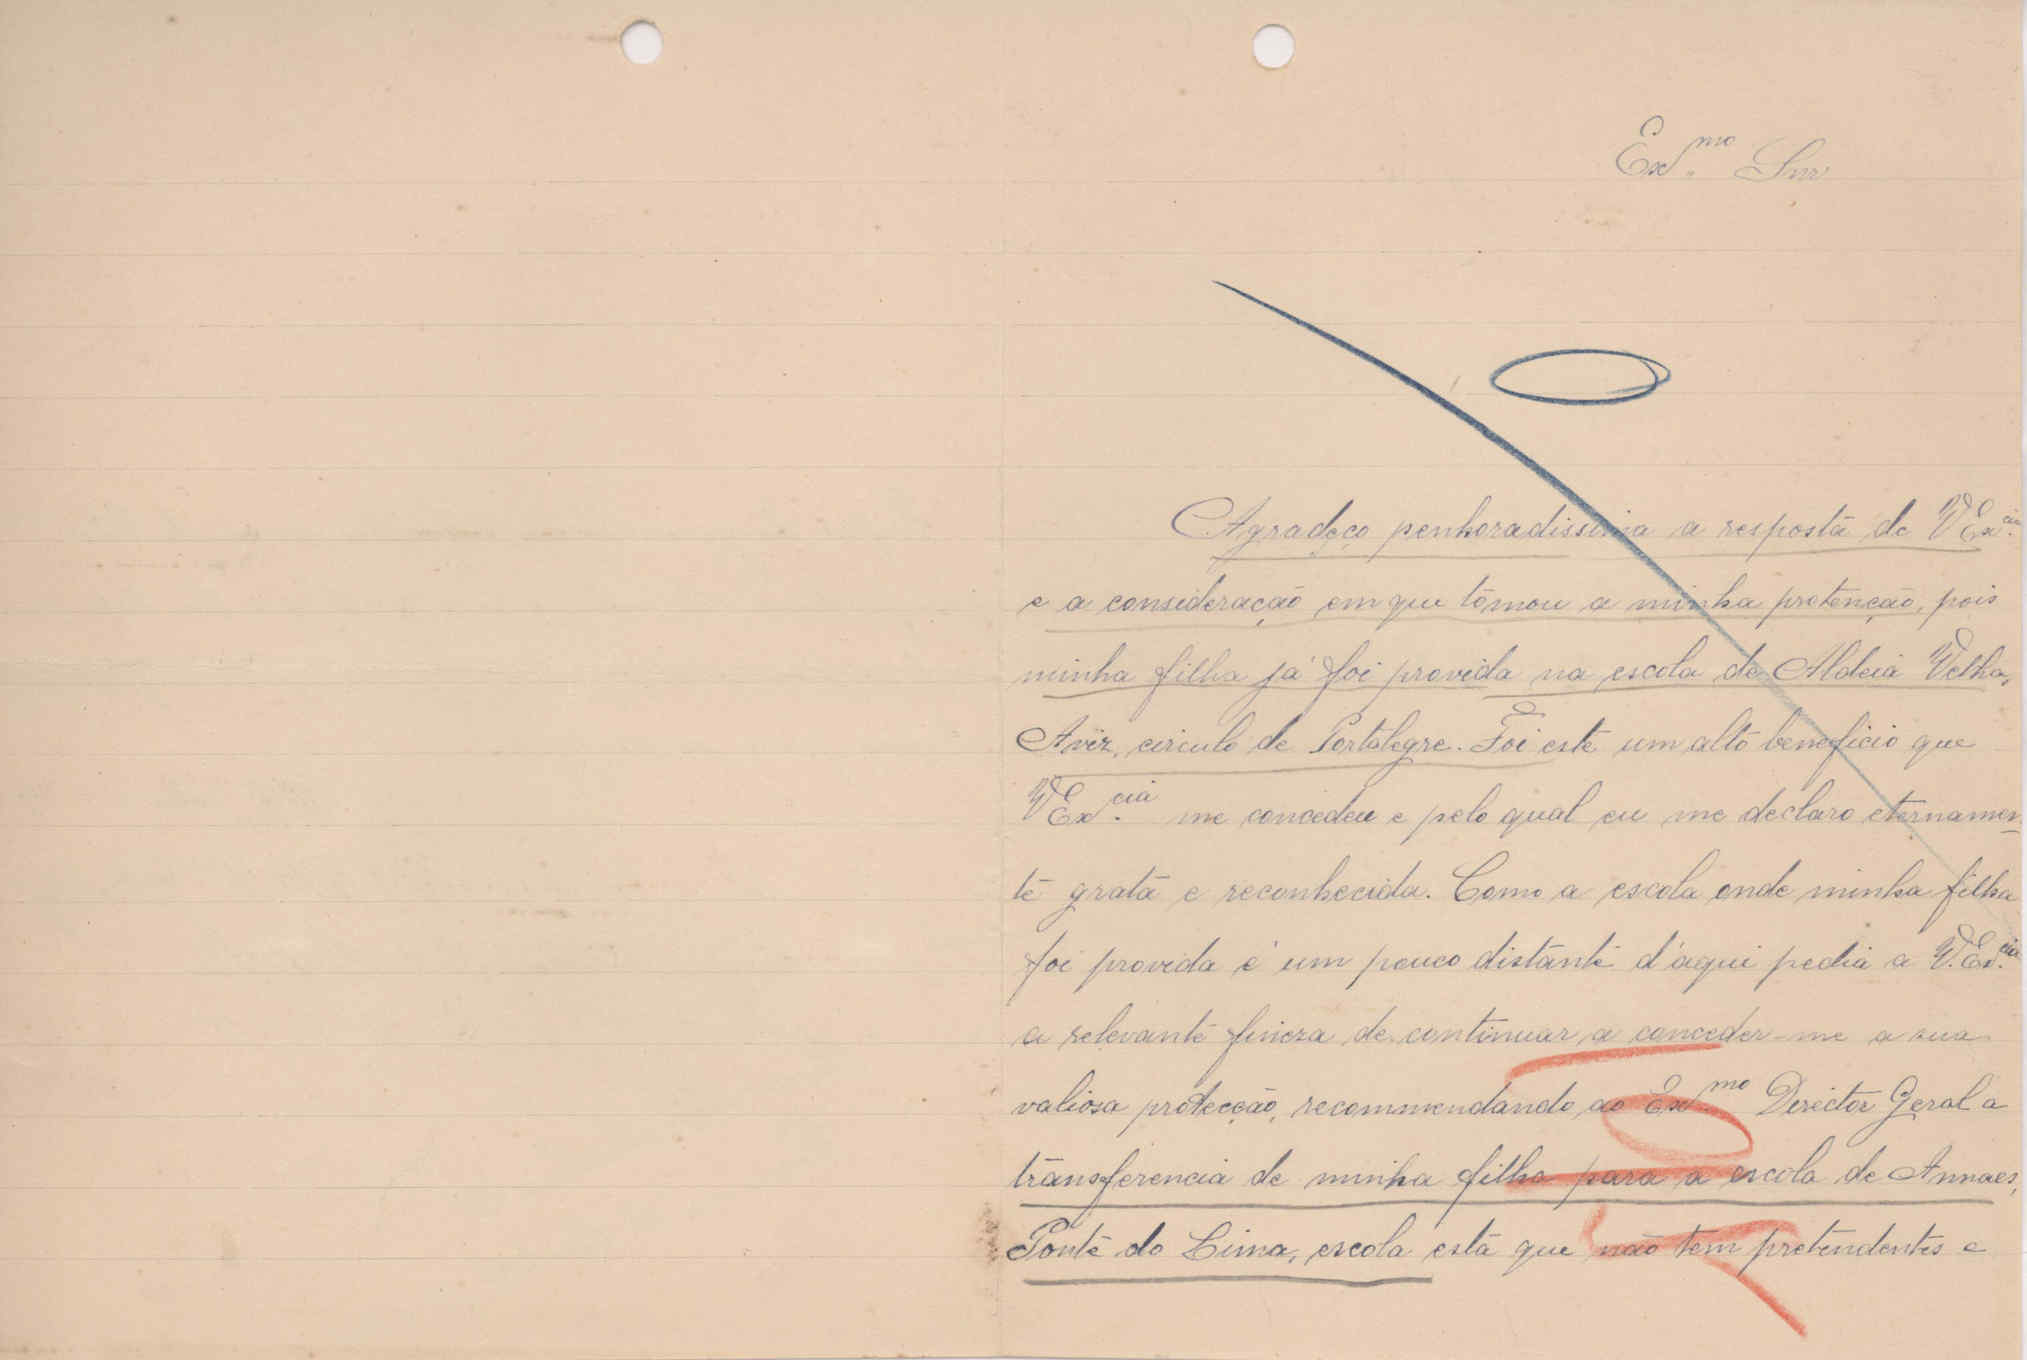 Ex.mo Snr
Agradeço penhoradissima a resposta de V Ex.cia
e a consideração em que tomou a minha pretenção, pois
minha filha já foi provida na escola de Aldeia Velha,
Aviz, circulo de Portalegre. Foi este um alto beneficio que
V Ex.cia me concedeu e pelo qual eu me declaro eternamen-
te grata e reconhecida. Como a escola onde minha filha
foi provida é um pouco distante d'aqui pedia a V. Ex.cia
a relevante fineza de continuar a conceder-me a sua
valiosa protecção, recommendando ao Ex.mo Director Geral a
transferencia de minha filha para a escola de Annaes,
Ponte do Lima, escola esta que não tem pretendentes e